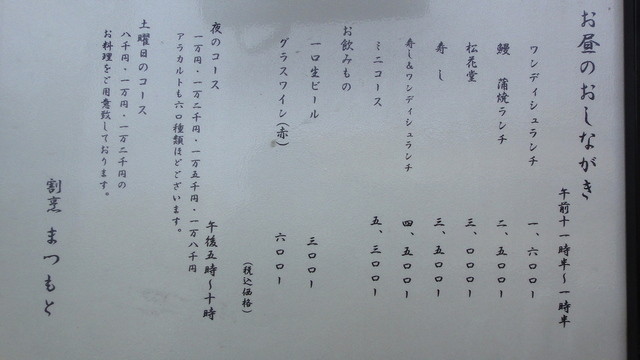 お昼のおしながき
午前十一時半〜一時半
ワンディシュランチ 一、六〇〇ー
鰻 蒲焼ランチ 二、五〇〇ー
松花堂 三、〇〇〇ー
寿し 三、五〇〇ー
寿し&ワンディシュランチ 四、五〇〇ー
ミニコース 五、三〇〇ー
お飲みもの
一口生ビール 三〇〇ー
グラスワイン(赤) 六〇〇ー
(税込価格)
夜のコース 午後五時〜十時
一万円・一万二千円・一万五千円・一万八千円
アラカルトも六〇種類ほどございます。
土曜日のコース
八千円・一万円・一万二千円の
お料理をご用意致しております。
割烹 まつもと